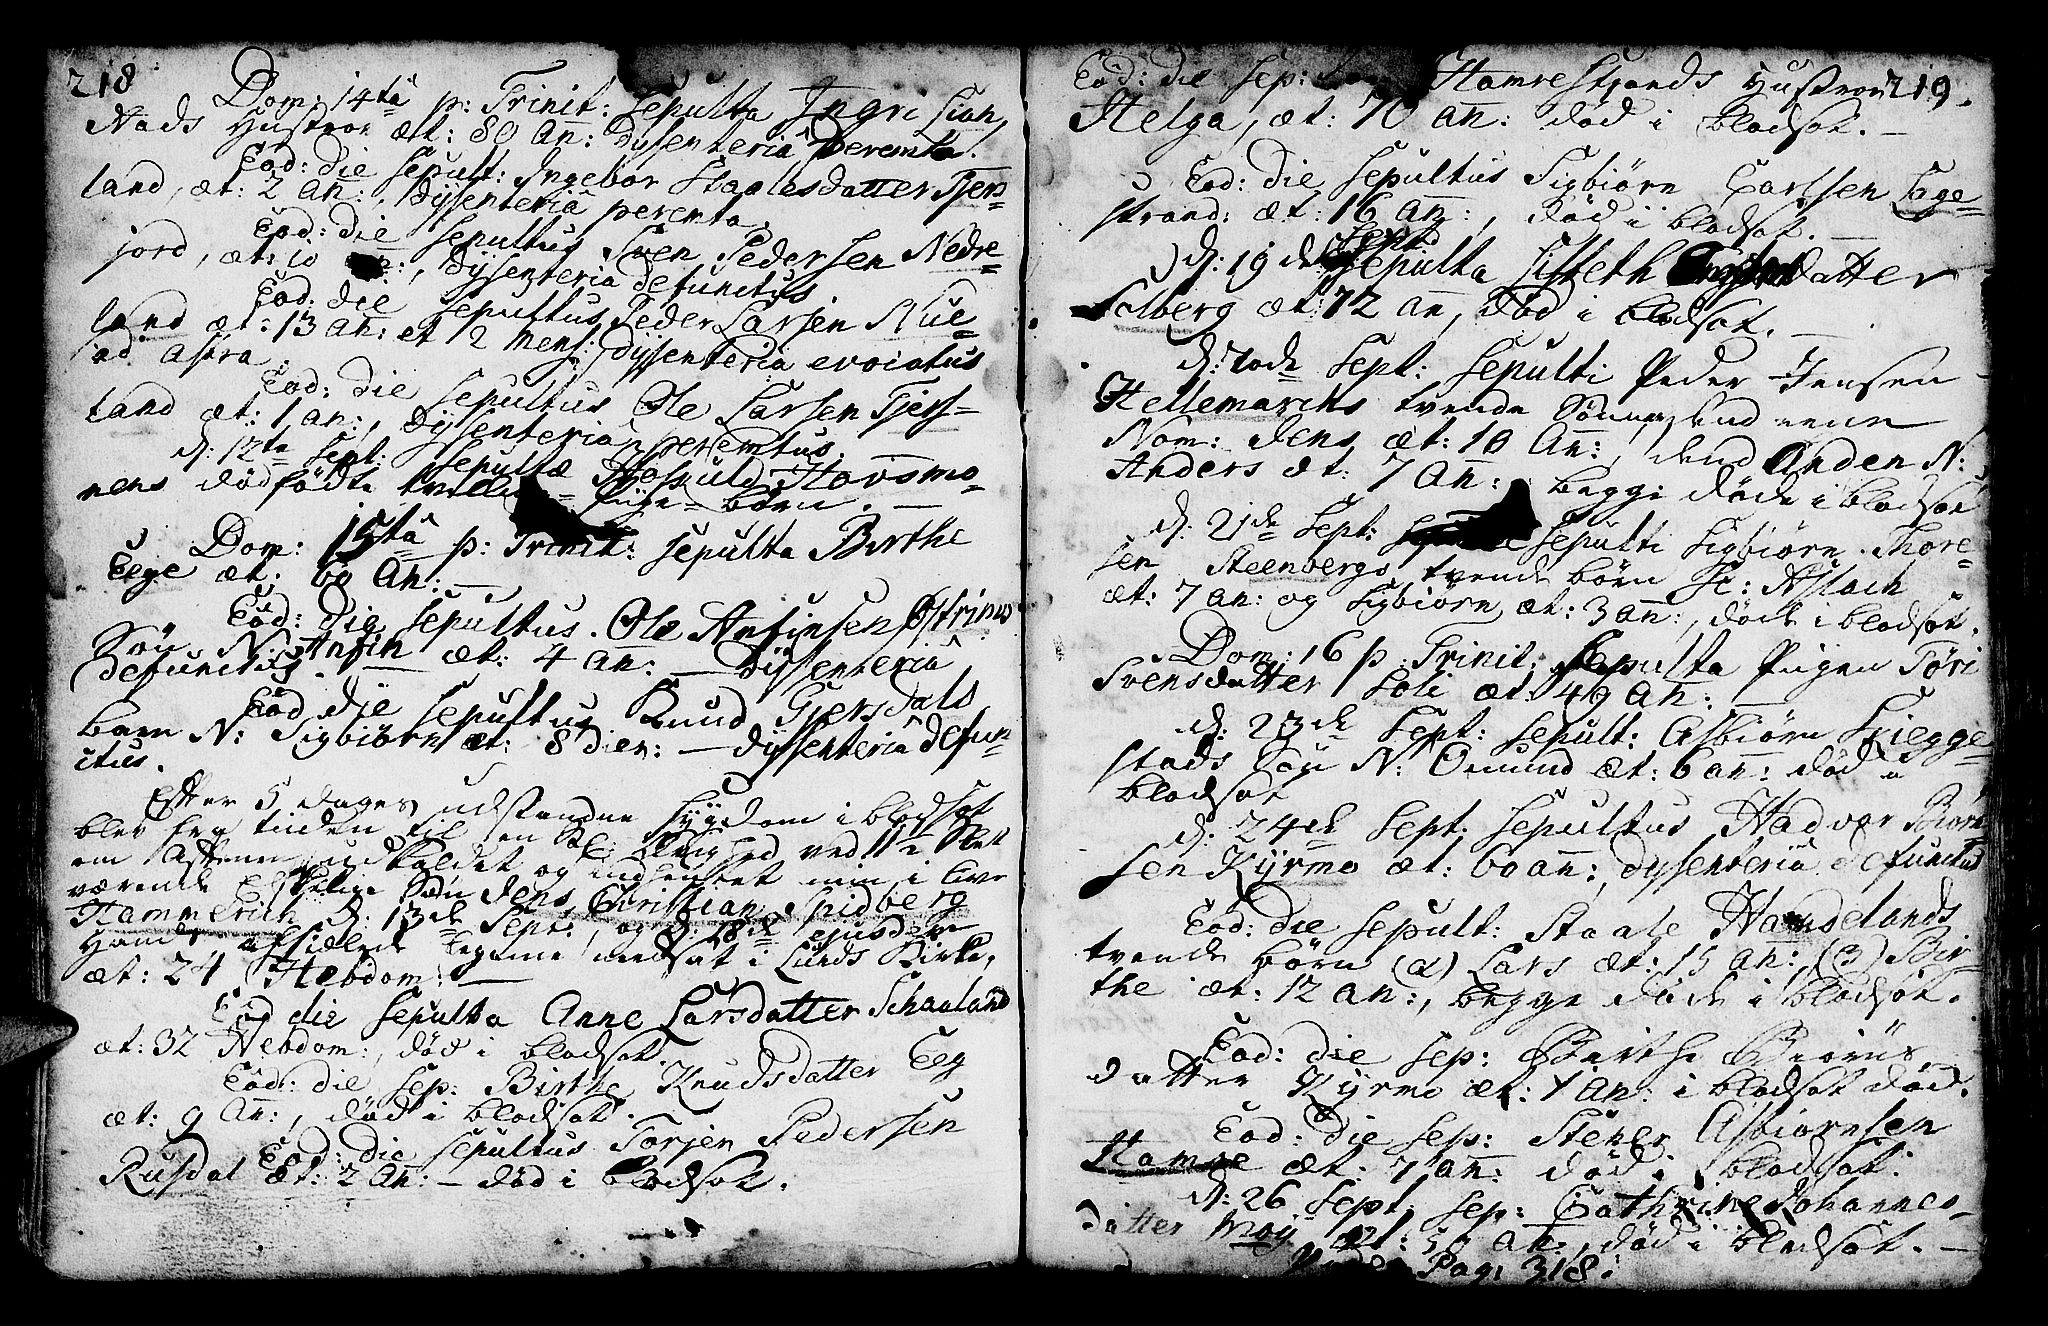 218
Dom: 14ta p: Trinit: sepulta Ingri Lian
Nads Hustroe æt: 80 an: Dyssenteria peremta.
Eod: die sepult: Ingebor Staalesdatter Tjers-
land, æt: 2 an:, Dyssenteria peremta.
Eod: die sepultus Sven Pedersen Nedre-
jord, æt: 10 :, Dyssenteria defunctus
Eod: die sepultus Peder Larsen Rue-
land æt: 13 an: et 12 mens: Dyssenteria evocatus
ad astra.
Eod: die sepultus Ole Larsen Tjers-
land æt: 1 an:, Dyssenteria peremtus.
d: 12ta Sept: sepultæ Hovsmo-
nens dødfødte Pige-børn. —
Dom: 15ta p: Trinit: sepulta Birthe
Eege æt: 60 an: —
Eod: die sepultus Ole Anfinsen Østrims
Søn N: Anfin — æt: 4 an: — Dyssenteria
defunctus.
Eod die sepultus Knud Gjersdals
barn N: Sigbiørn æt: 8 dier: — dyssenteria defun-
ctus.
Efter 5 dages udstandne Sygdom i blodsot
blev fra tiden til en sl: Evighed ved 11 Slet
om Aftenen udkaldet og indhentet min i live
værende Søn Jens Christian Spidberg
Hammerich d: 13de Sept:, og d: 18de ejusdem
Hans afsiælede legeme nedsat i Lunds Kirke,
æt: 24 Hebdom: —
Eod die sepulta Anne Larsdatter Schaaland
æt: 32 Hebdom:, død i blodsot.
Eod: die sep: Birthe Knudsdatter Eeg
æt: 9 An:, død i blodsot.
Eod: die sepultus Torjer Pedersen
Rusdal æt: 2 an: — død i blodsot.
219.
Eod: die sep: Hamrestrands Hustroe
Helga, æt: 70 an: død i blodsot. —
Eod: die sepultus Sigbiørn Carlsen Ege-
strand: æt: 16 an:, død i blodsot. —
d: 19de Sept: sepulta Lisbeth datter
æt: 72 an, død i blodsot. —
d: 20de Sept: sepulti Peder Jensen
Hellemarchs tvende Sønner, dend eene
Nom: Jens æt: 10 An:, dend Anden N:
Anders æt: 7 an: begge døde i blodsot
d: 21de Sept: sepulti Sigbiørn Thore-
sen Steenbergs tvende børn Sc: Aslach
æt: 7 an: og Sigbiørn æt: 3 an:, døde i blodsot.
Dom: 16 p: Trinit: sepulta Pigen Tøri
Svensdatter Loli æt: 49 an: —
d: 23de Sept: sepult: Asbiørn Skiegge-
stads Søn N: Omund æt: 6 an: død i
blodsot
d: 24de Sept: sepultus Hadvor Biørn-
sen Kyrmo æt: 60 an:, dyssenteria defunctus
Eod: die sepult: Staale Handelands
tvende børn (a) Lars æt: 15 an:, (3) Bir-
the æt: 12 an:, begge døde i blodsot.
Eod: die sep: Birthe Biørns-
datter Kyrmo æt: 1 an: i blodsot død.
Eod: die sep: Stener Asbiørnsen
Hamre æt: 7 an: død i blodsot.
d: 26 Sept. sep: Cathrine Johannes-
datter Moy æt: an:, død i blodsot. —
Pag: 318.